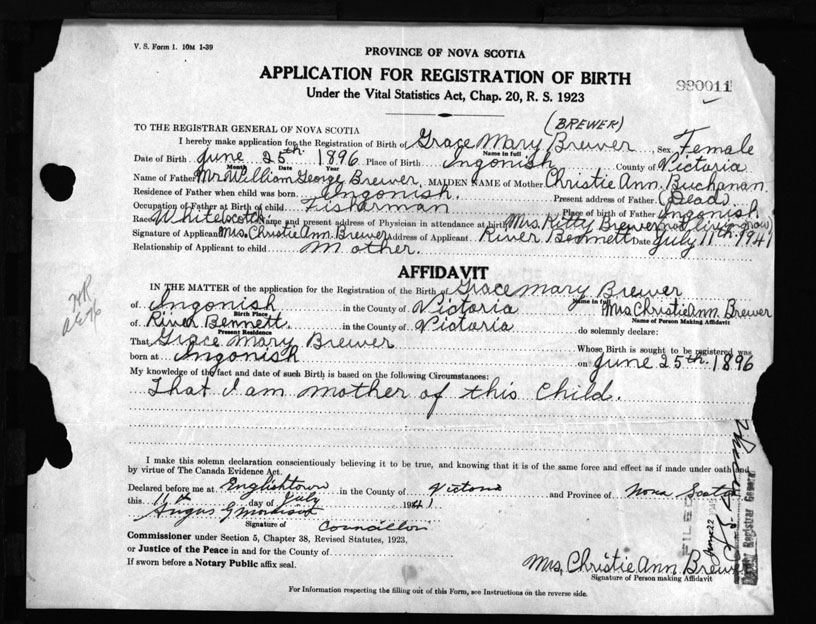 V. S. Form 1. 10M 1-39
PROVINCE OF NOVA SCOTIA
APPLICATION FOR REGISTRATION OF BIRTH
990011
Under the Vital Statistics Act, Chap. 20, R. S. 1923
(BREWER)
TO THE REGISTRAR GENERAL OF NOVA SCOTIA
I hereby make application for the Registration of Birth of Grace Mary Brewer Sex Female
Name in full
Date of Birth June 25th 1896 Place of Birth Ingonish County of Victoria
Month Date Year
Name of Father Mr William George Brewer, MAIDEN NAME of Mother Christie Ann Buchanan
Residence of Father when child was born Ingonish. Present address of Father (Dead)
Occupation of Father at Birth of child Fisherman Place of birth of Father Ingonish
Race White Scotch Name and present address of Physician in attendance at birth Mrs. Kitty Brewer not living now
Signature of Applicant Mrs. Christie Ann Brewer Address of Applicant River Bennett Date July 11th 1941
Relationship of Applicant to child Mother.
AFFIDAVIT
IN THE MATTER of the application for the Registration of the Birth of Grace Mary Brewer
Name in full
of Ingonish in the County of Victoria Mrs Christie Ann Brewer
Birth Place Name of Person Making Affidavit
of River Bennett. in the County of Victoria do solemnly declare:
Present Residence
That Grace Mary Brewer Whose Birth is sought to be registered was
born at Ingonish on June 25th 1896
My knowledge of the fact and date of such Birth is based on the following Circumstances:
That I am mother of this Child.
I make this solemn declaration conscientiously believing it to be true, and knowing that it is of the same force and effect as if made under oath and
by virtue of The Canada Evidence Act.
Declared before me at Englishtown in the County of Victoria and Province of Nova Scotia
this 11th day of July 1941
Angus G Morrison
Signature of Councillor
Commissioner under Section 5, Chapter 38, Revised Statutes, 1923,
or Justice of the Peace in and for the County of
If sworn before a Notary Public affix seal.
Mrs. Christie Ann Brewer
Signature of Person making Affidavit
FILED
Deputy Registrar General
For Information respecting the filling out of this Form, see Instructions on the reverse side.